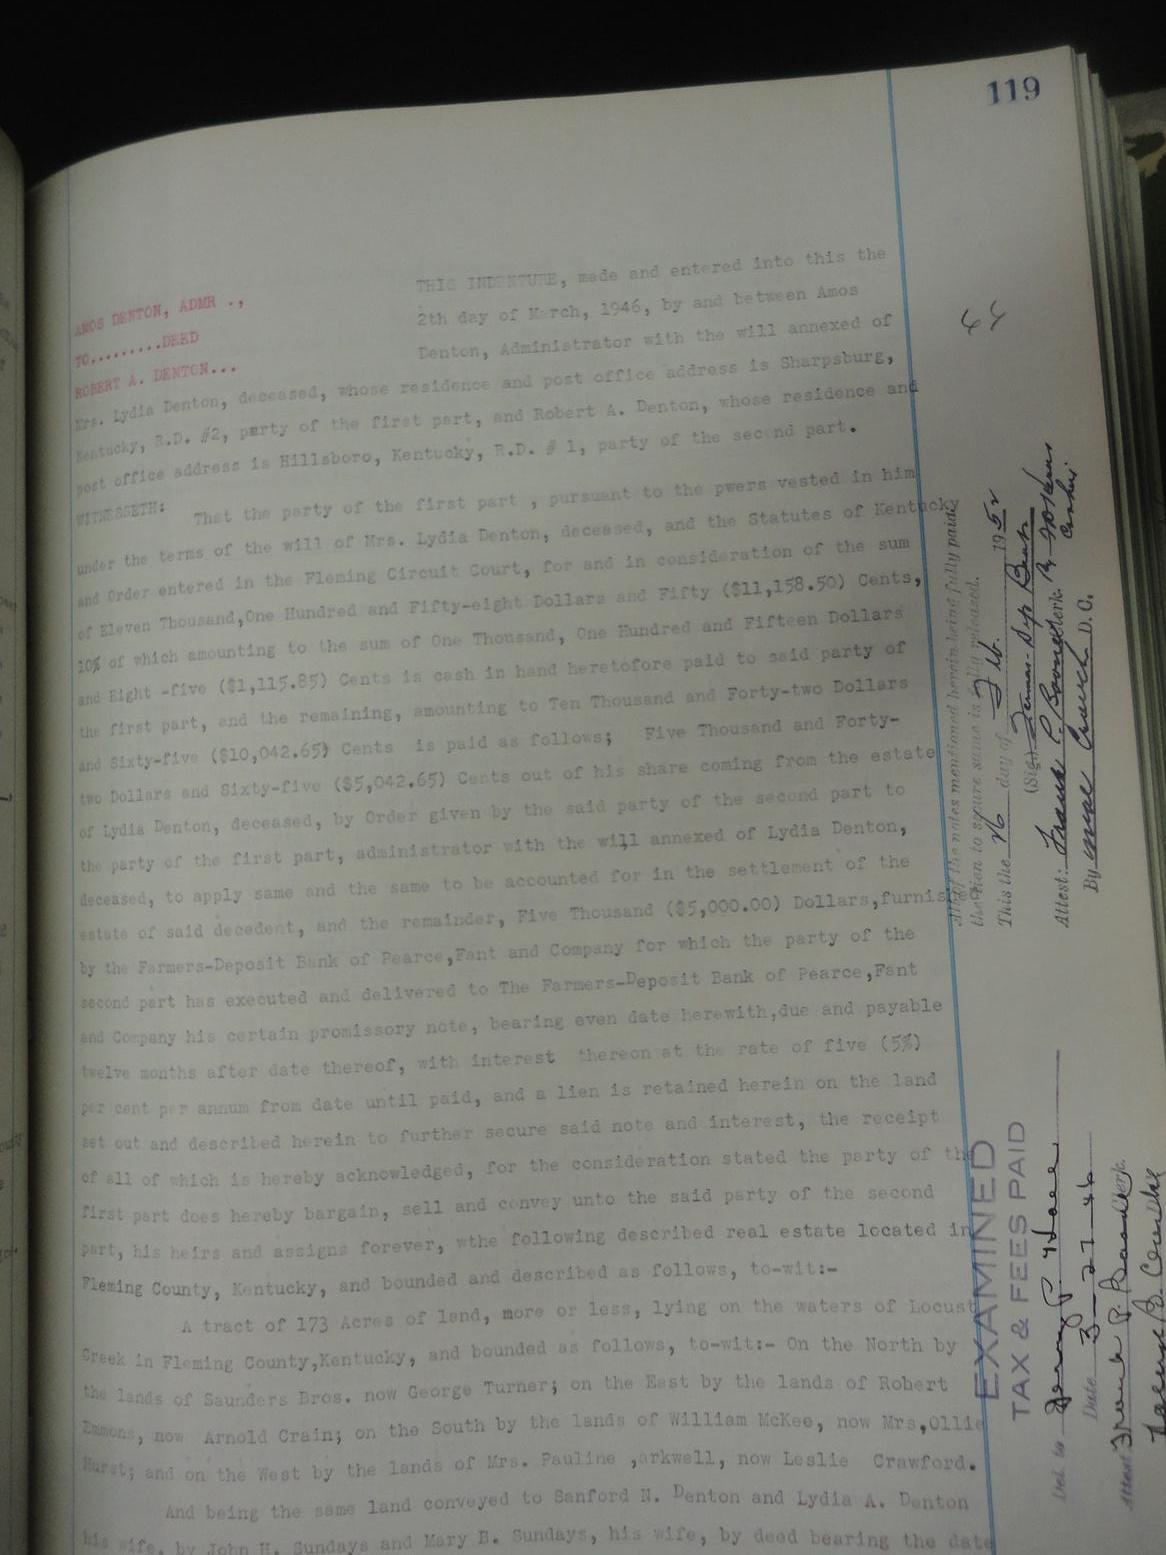 119
AMOS DENTON, ADMR .,
TO.........DEED
ROBERT A. DENTON...
THIS INDENTURE, made and entered into this the
2th day of March, 1946, by and between Amos
Denton, Administrator with the will annexed of
Mrs. Lydia Denton, deceased, whose residence and post office address is Sharpsburg,
Kentucky, R.D. #2, party of the first part, and Robert A. Denton, whose residence and
post office address is Hillsboro, Kentucky, R.D. # 1, party of the second part.
WITNESSETH: That the party of the first part , pursuant to the pwers vested in him
under the terms of the will of Mrs. Lydia Denton, deceased, and the Statutes of Kentucky
and Order entered in the Fleming Circuit Court, for and in consideration of the sum
of Eleven Thousand,One Hundred and Fifty-eight Dollars and Fifty ($11,158.50) Cents,
10% of which amounting to the sum of One Thousand, One Hundred and Fifteen Dollars
and Eight -five ($1,115.85) Cents is cash in hand heretofore paid to said party of
the first part, and the remaining, amounting to Ten Thousand and Forty-two Dollars
and Sixty-five ($10,042.65) Cents is paid as follows; Five Thousand and Forty-
two Dollars and Sixty-five ($5,042.65) Cents out of his share coming from the estate
of Lydia Denton, deceased, by Order given by the said party of the second part to
the party of the first part, administrator with the will annexed of Lydia Denton,
deceased, to apply same and the same to be accounted for in the settlement of the
estate of said decedent, and the remainder, Five Thousand ($5,000.00) Dollars,furnis
by the Farmers-Deposit Bank of Pearce,Fant and Company for which the party of the
second part has executed and delivered to The Farmers-Deposit Bank of Pearce,Fant
and Company his certain promissory note, bearing even date herewith,due and payable
twelve months after date thereof, with interest thereon at the rate of five (5%)
per cent per annum from date until paid, and a lien is retained herein on the land
set out and described herein to further secure said note and interest, the receipt
of all of which is hereby acknowledged, for the consideration stated the party of the
first part does hereby bargain, sell and convey unto the said party of the second
part, his heirs and assigns forever, wthe following described real estate located in
Fleming County, Kentucky, and bounded and described as follows, to-wit:-
A tract of 173 Acres of land, more or less, lying on the waters of Locust
Creek in Fleming County,Kentucky, and bounded as follows, to-wit:- On the North by
the lands of Saunders Bros. now George Turner; on the East by the lands of Robert
Emmons, now Arnold Crain; on the South by the lands of William McKee, now Mrs,Ollie
Hurst; and on the West by the lands of Mrs. Pauline ,arkwell, now Leslie Crawford.
And being the same land conveyed to Sanford N. Denton and Lydia A. Denton
his wife, by John H. Sundays and Mary B. Sundays, his wife, by deed bearing the date
All of the notes mentioned herein being fully paid,
the lien to secure same is fully released.
This the 26 day of Feb. 1952
(Sig.) Farmers Dep Bank
Attest: Frank P. Clerk. By
By D.C.
EXAMINED
TAX & FEES PAID
Del. to
Date 3-27-46
Attest Frank P. Clerk.